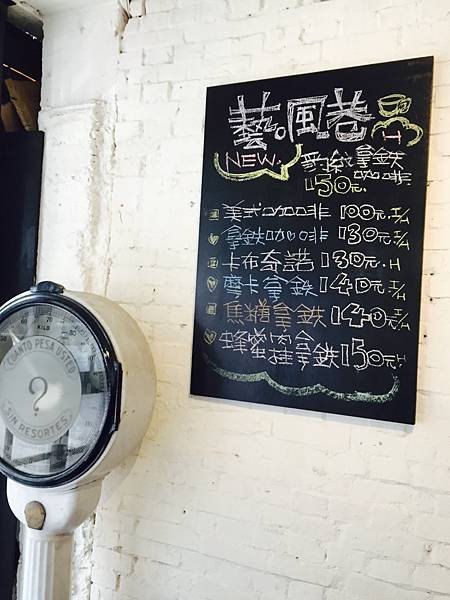 藝。風巷
H
NEW. 拿鐵咖啡
150元.
美式咖啡 100元.I/H
拿鐵咖啡 130元.I/H
卡布奇諾 130元.H
摩卡拿鐵 140元.I/H
焦糖拿鐵 140元.I/H
蜂蜜肉桂拿鐵 150元.H
KILO
CUANTO PESA USTED
?
SIN RESORTES